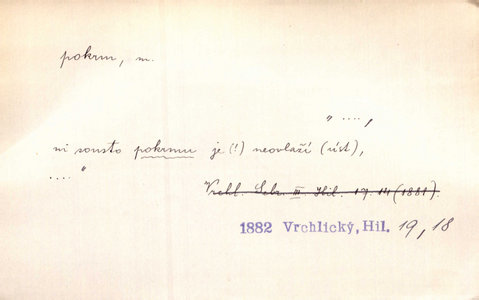 pokrm, m.
„ ....,
ni sousto pokrmu je (!) neovlaží (úst),
.... "
Vrchl. Sebr. III. Hil. 17. 14 (1881).
1882 Vrchlický, Hil. 19, 18